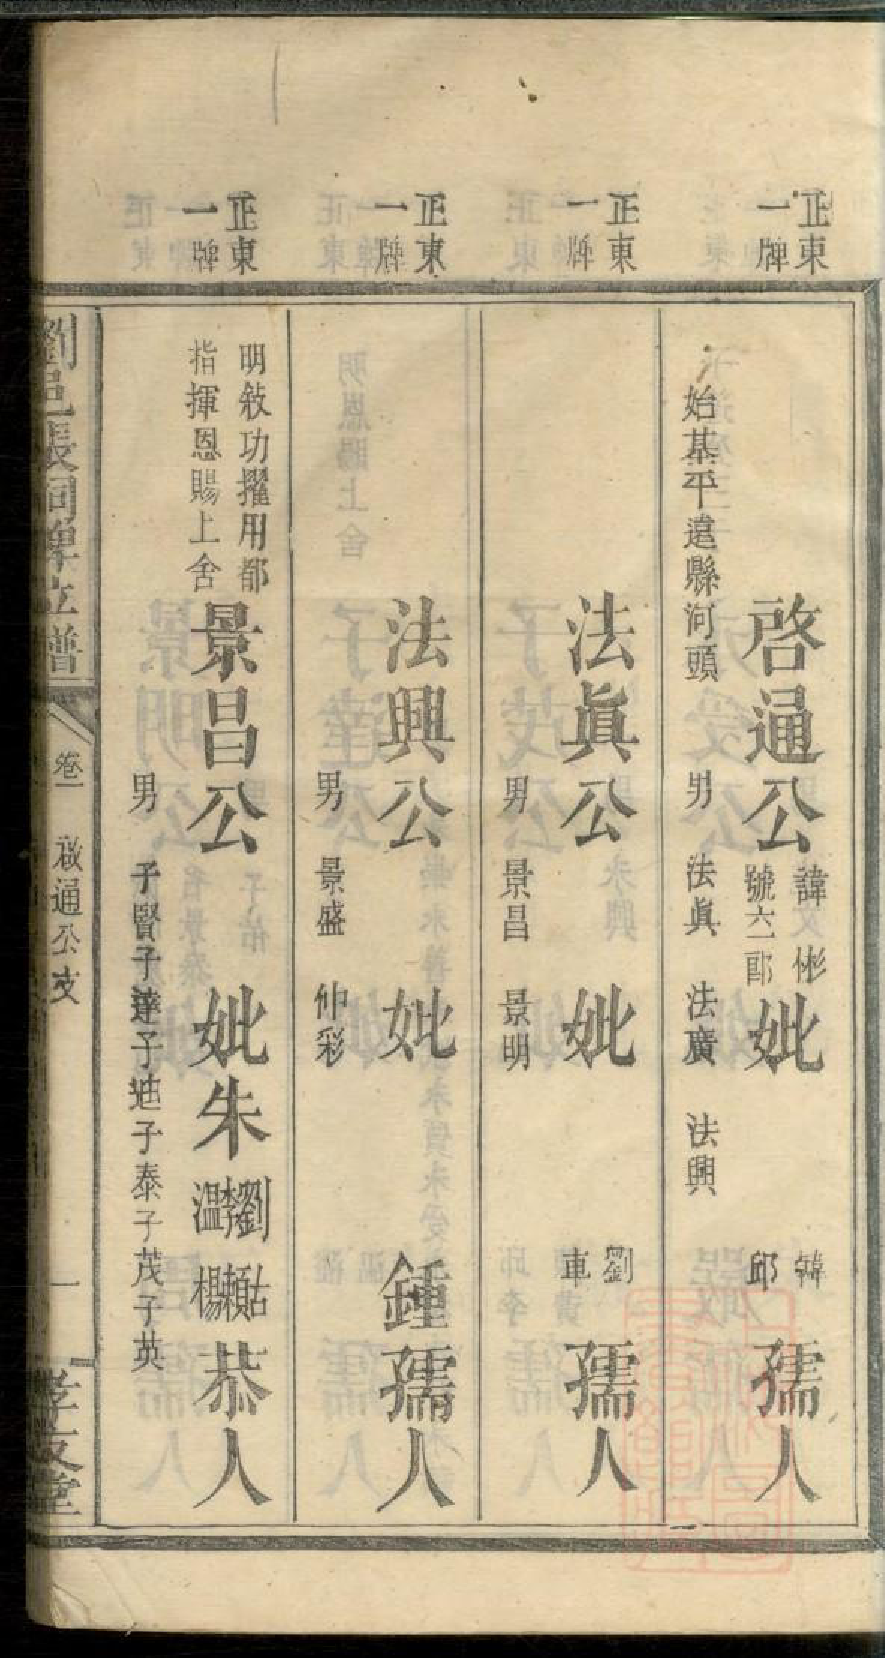 正東
一牌
始基平遠縣河頭
啓通公
諱彬
號六一郎
妣
韓
邱
孺人
男 法眞 法廣 法興
正東
一牌
法眞公
妣
劉
車
孺人
男 景昌 景明
正東
一牌
法興公
妣
鍾孺人
男 景盛 仲彩
正東
一牌
明敘功擢用都
指揮恩賜上舍
景昌公
妣朱
劉
李
溫
古
賴
楊
恭人
男 子賢子達子迪子泰子茂子英
卷一
啟通公支
一
孝友堂